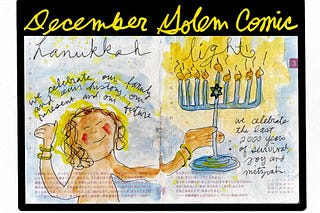 December Golem Comic
Hanukkah lights
we celebrate our family
and our history, our
present and our future
we celebrate
the last
2000 years
of survival
joy and
mitzvah.
3